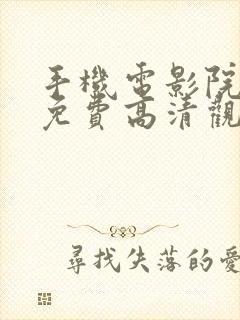 手機電影院
免費高清觀
尋找失落的愛